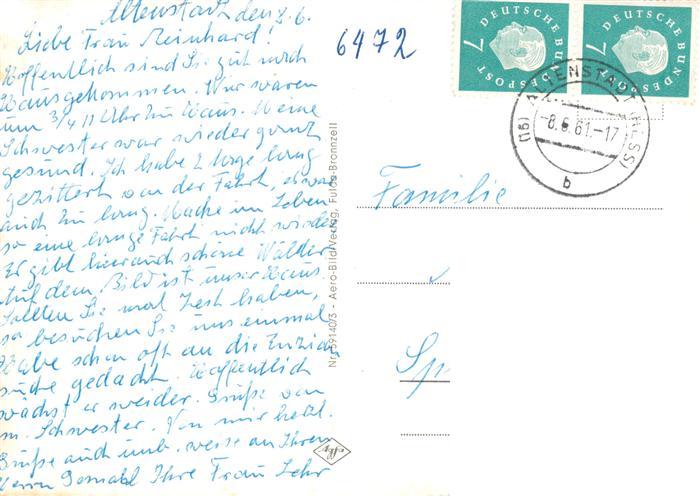 Altenstadt den 8.6.
Liebe Frau Reinhard!
Hoffentlich sind Sie gut nach
Haus gekommen. Wir waren
um 3/4 11 Uhr zu Haus. Meine
Schwester war wieder ganz
gesund. Ich habe 2 Tage lang
gezittert von der Fahrt, etwas
auch zu lang. Mache im Leben
so eine lange Fahrt nicht wieder
Er gibt hier auch schöne Wälder
Auf dem Bild ist unser Haus
Sollten Sie mal Zeit haben,
so besuchen Sie uns einmal
Habe schon oft an die Enzian
suche gedacht. Hoffentlich
wächst er weider. Grüße von
m. Schwester. Von mir herzl.
Grüße auch unb. weise an Ihren
Herrn Gemahl Ihre Frau Lehr
6472
DEUTSCHE BUNDESPOST 7
DEUTSCHE BUNDESPOST 7
(16) ALTENSTADT (HESS)
-8.6.61.-17
b
Familie
Sp
Nr. 5914073 - Aero-Bild-Verlag, Fulda-Bronnzell
Agfa